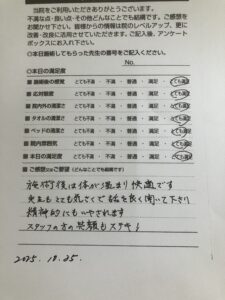 当院をご利用いただきありがとうございます。
不満な点・良い点・その他どんなことでも結構です。ご感想を
お聞かせ下さい。皆様からの情報は院のレベルアップ、更に
改善・改良に活用させていただきます。ご記入後、アンケート
ボックスにお入れ下さい。
◎本日施術してもらった先生の番号をご記入ください。
No.
◎本日の満足度
■施術後の感覚 とても不満 ・ 不満 ・ 普通 ・ 満足 ・ とても満足
■応対態度 とても不満 ・ 不満 ・ 普通 ・ 満足 ・ とても満足
■院内外の清潔さ とても不満 ・ 不満 ・ 普通 ・ 満足 ・ とても満足
■タオルの清潔さ とても不満 ・ 不満 ・ 普通 ・ 満足 ・ とても満足
■ベッドの清潔さ とても不満 ・ 不満 ・ 普通 ・ 満足 ・ とても満足
■院内雰囲気 とても不満 ・ 不満 ・ 普通 ・ 満足 ・ とても満足
■本日の満足度 とても不満 ・ 不満 ・ 普通 ・ 満足 ・ とても満足
■ご感想又はご要望 (どんなことでも結構です)
施術後は体が温まり快適です
先生もとても気さくで話を良く聞いて下さり
精神的にもいやされます
スタッフの方の笑顔もステキ♪
2025. 10. 25.